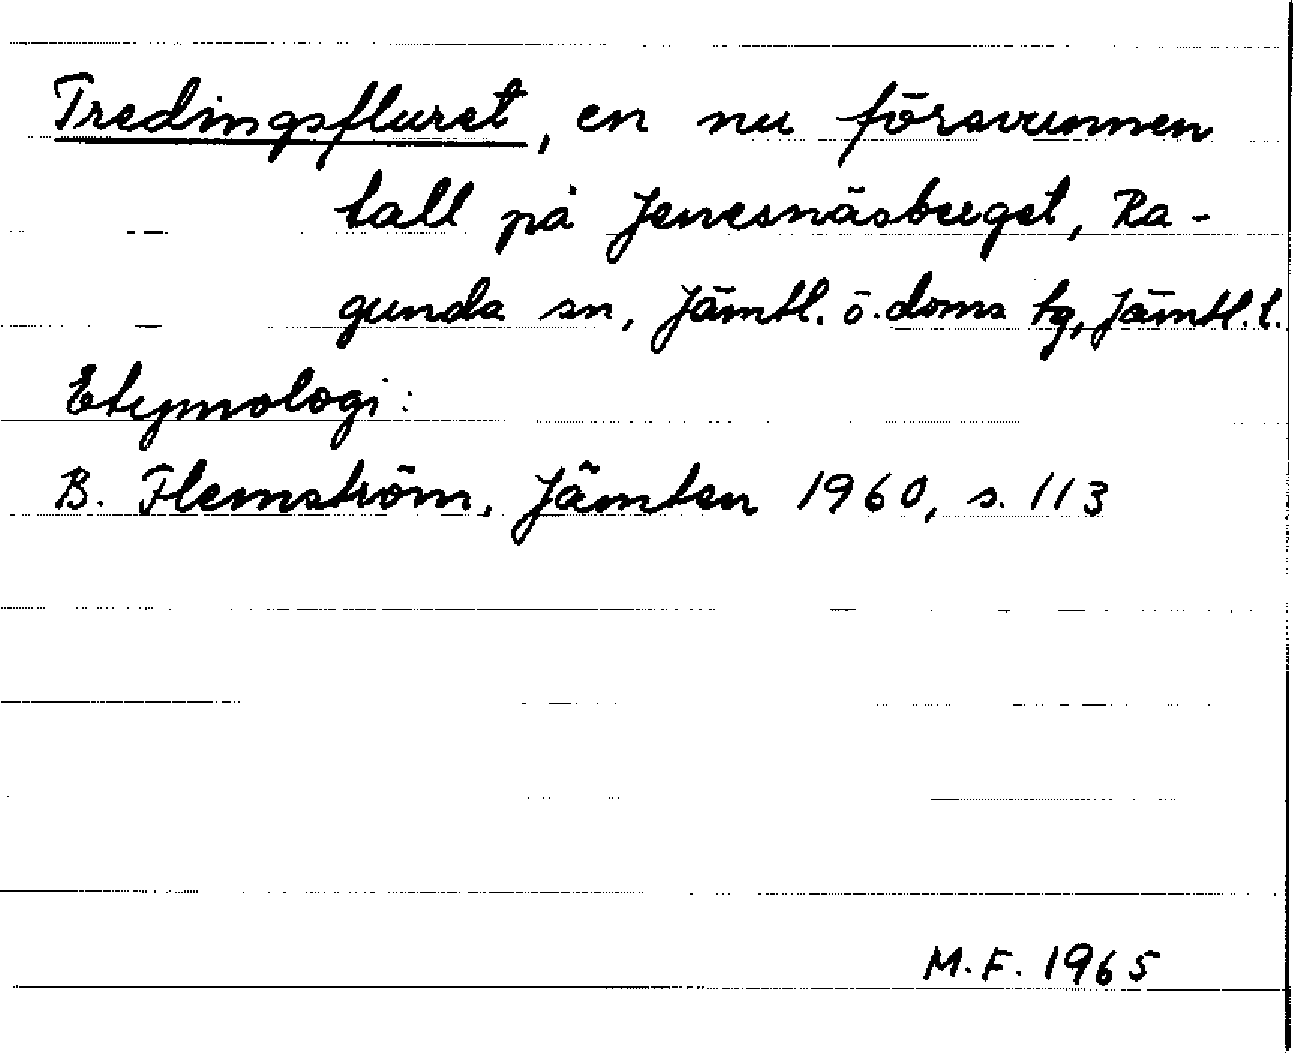 Tredingsfluret, en nu försvunnen
tall på Jenesnäsberget, Ra-
gunda sn, Jämtl. ö. doms tg, Jämtl. l.
Etymologi:
B. Flemström, Jämten 1960, s. 113
M.F. 1965